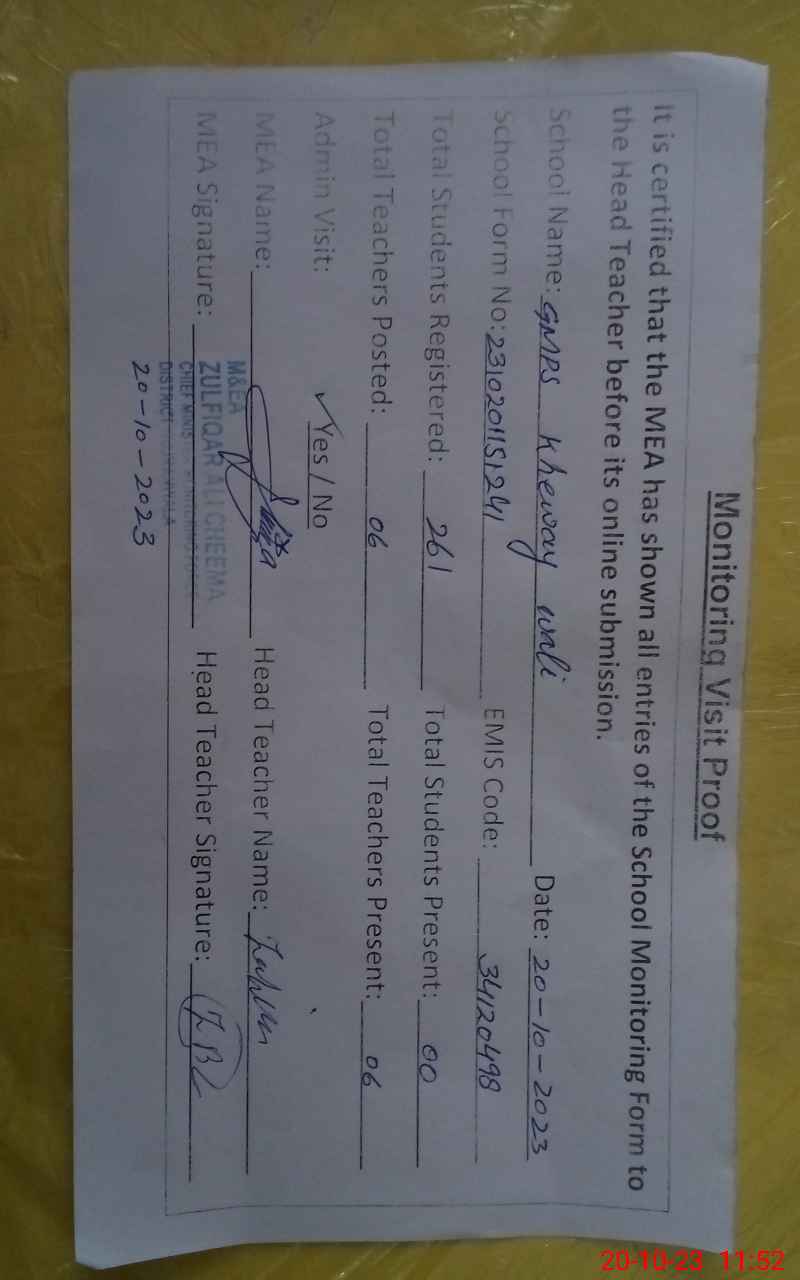 Monitoring Visit Proof
It is certified that the MEA has shown all entries of the School Monitoring Form to
the Head Teacher before its online submission.
School Name: GMPS Kheway wali Date: 20-10-2023
School Form No: 2310201151241 EMIS Code: 34120498
Total Students Registered: 261 Total Students Present: 00
Total Teachers Posted: 06 Total Teachers Present: 06
Admin Visit: ✓Yes / No
MEA Name: Head Teacher Name:
MEA Signature: Head Teacher Signature:
M&EA
ZULFIQAR ALI CHEEMA
CHIEF MINIS
DISTRICT
20-10-2023
20-10-23 11:52